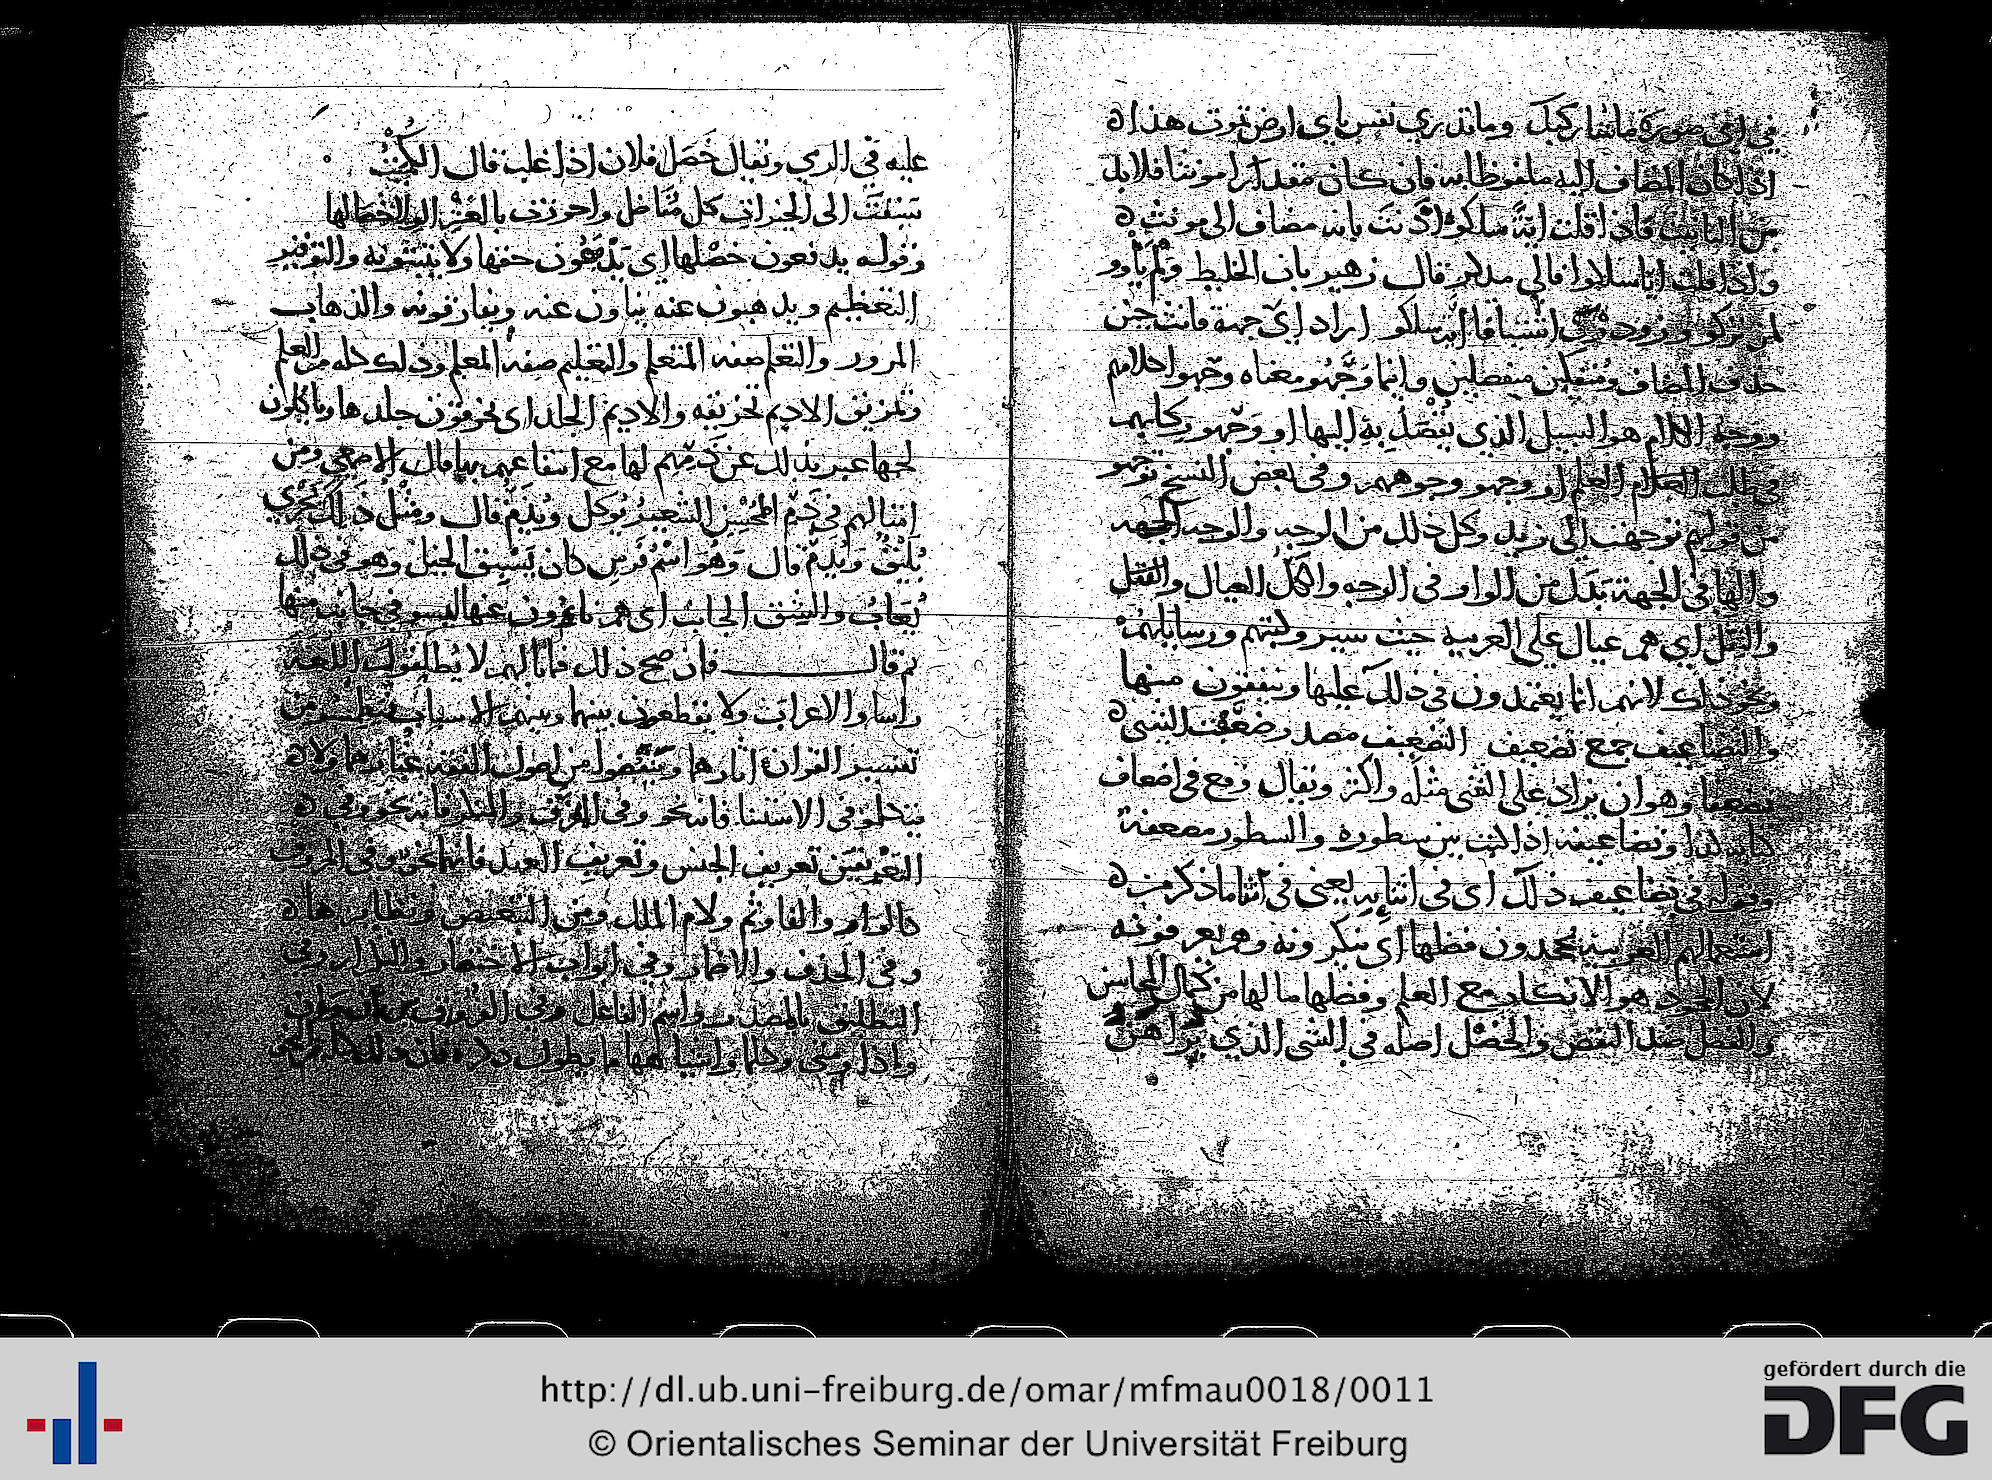 في اي صورة ماشا ركبك وما تدري نفس باي ارض تموت هذا
اذا كان المضاف اليه ملفوظا به فان كان مقدرا مونثا فلابد
من التانيث فاذا قلت اية سلكوا انثت بانه مضاف الى مونث
واذا قلت ايا سلكوا فالى مذكر قال زهير بان الخليط ولم ياوو
لمن تركوا وزودوك اشتياقا اية سلكوا اراد اي جهة فانث حين
حذف المضاف منفصلين وانما وجهو معناه وجهوا احلامهم
ووجه الكلام هو السبيل الذي يقصد به اليها او وجهو ركابهم
في طلب العلم او وجهو وجوههم وفي بعض النسخ توجهو
من قولهم توجهت الى زيد وكل ذلك من الوجه والوجه الجهه
والها في الجهة بدل من الواو في الوجه والكل العيال والثقل
والثقل اي هم عيال على العربية حيث سير وكتبهم ورسايلهم
ونحو ذلك لانهم انما يعتمدون في ذلك عليها وينفقون منها
والتضاعيف جمع تضعيف التضعيف مصدر ضعفت الشي
تضعيفا وهو ان يزاد على الشي مثله واكثر ويقال وقع في اضعاف
كتابه كذا وتضاعيفه اذا كتب بين سطوره والسطور مضعفة
وقوله في تضاعيف ذلك اي في اثنايه يعني في اثنا ما ذكر من
استعمالهم العربية يجحدون فضلها اي ينكرونه وهم يعرفونه
لان الجحود هو الانكار مع العلم وفضلها ما لها من كمال المحاسن
والفضل ضد النقص والخصل اصله في الشي الذي يراهن
عليه في الرمي ويقال خصل فلان اذا غلب قال الكميت
سبقت الى الخيرات كل مناضل واحرزت بالعشر الولا خصالها
وقوله يدفعون خصلها اي يدفعون حقها ولا يثبتونه والتوقير
التعظيم ويذهبون عنه يناون عنه ويفارقونه والذهاب
المرور والتعلم صفه المتعلم والتعليم صفه المعلم وذلك كله من العلم
وتمزيق الاديم تخزيقه والاديم الجلد اي يخرقون جلدها وياكلون
لحمها عبر بذلك عن ذمهم لها مع انتفاعهم بها قال الاصمعي ومن
امثالهم في ذم المحسن الشعير يوكل ويذم قال ومثل ذلك يجري
بليق ويذم قال وهو اسم فرس كان يسبق الخيل وهو في ذلك
يعاب والشق الجانب اي هم ناعون عنها ليسو في جانب منها
ثم قال فان صح ذلك فما بالهم لا يطلقون اللغة
راسا والاعراب ولا يقطعون بينهما وبينهم الاسباب فيطمسو من
تفسير القران اثارهما وينفضوا من اصول الفقه غبارهما ولا
يتكلمو في الاستثنا فانه نحو وفي الفرق والمنكر فانه نحو وفي
التعريفين تعريف الجنس وتعريف العهد فانهما نحو وفي الحروف
كالواو والفا وثم ولام الملك ومن التبعيض ونظايرها
وفي الحذف والاضمار وفي ابواب الاختصار والتكرار وفي
التطليق بالمصدر واسم الفاعل وفي الفرق بين ان وان
واذا ومتى وكلما واشباهها مما يطول ذكره فان ذلك كله من النحو
http://dl.ub.uni-freiburg.de/omar/mfmau0018/0011
© Orientalisches Seminar der Universität Freiburg
gefördert durch die
DFG